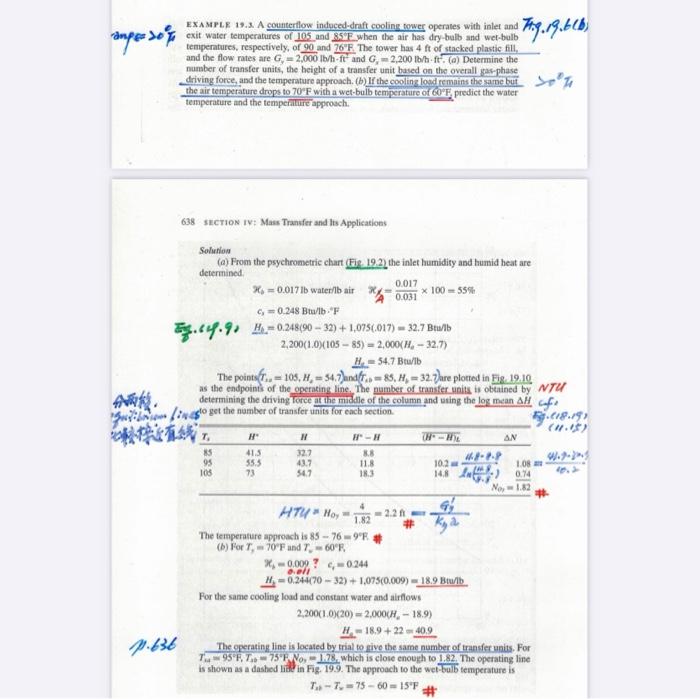 EXAMPLE 19.3. A counterflow induced-draft cooling tower operates with inlet and
exit water temperatures of 105 and 85°F when the air has dry-bulb and wet-bulb
temperatures, respectively, of 90 and 76°F. The tower has 4 ft of stacked plastic fill,
and the flow rates are Gy = 2,000 lb/h·ft² and Gx = 2,200 lb/h·ft². (a) Determine the
number of transfer units, the height of a transfer unit based on the overall gas-phase
driving force, and the temperature approach. (b) If the cooling load remains the same but
the air temperature drops to 70°F with a wet-bulb temperature of 60°F, predict the water
temperature and the temperature approach.
Fig. 19.6(b)
638 SECTION IV: Mass Transfer and Its Applications
Solution
(a) From the psychrometric chart (Fig. 19.2) the inlet humidity and humid heat are
determined.
ℋb = 0.017 lb water/lb air ℋA = 0.017/0.031 × 100 = 55%
cs = 0.248 Btu/lb·°F
Hb = 0.248(90 − 32) + 1,075(.017) = 32.7 Btu/lb
2,200(1.0)(105 − 85) = 2,000(Ha − 32.7)
Ha = 54.7 Btu/lb
The points (Txa = 105, Ha = 54.7) and (Txb = 85, Hb = 32.7) are plotted in Fig. 19.10
as the endpoints of the operating line. The number of transfer units is obtained by NTU
determining the driving force at the middle of the column and using the log mean ΔH cf.
to get the number of transfer units for each section. Eg.(18.19)
(11.15)
Tx H* H H* − H (H* − H)L ΔN
85 41.5 32.7 8.8
95 55.5 43.7 11.8 10.2 1.08
105 73 54.7 18.3 14.8 0.74
NOy = 1.82 #
HTU = HOy = 4/1.82 = 2.2 ft #
The temperature approach is 85 − 76 = 9°F. #
(b) For Ty = 70°F and Tw = 60°F,
ℋb = 0.009 ? cs = 0.244
0.011
Hb = 0.244(70 − 32) + 1,075(0.009) = 18.9 Btu/lb
For the same cooling load and constant water and airflows
2,200(1.0)(20) = 2,000(Ha − 18.9)
Ha = 18.9 + 22 = 40.9
p.636
The operating line is located by trial to give the same number of transfer units. For
Txa = 95°F, Txb = 75°F, NOy = 1.78, which is close enough to 1.82. The operating line
is shown as a dashed line in Fig. 19.9. The approach to the wet-bulb temperature is
Txb − Tw = 75 − 60 = 15°F #